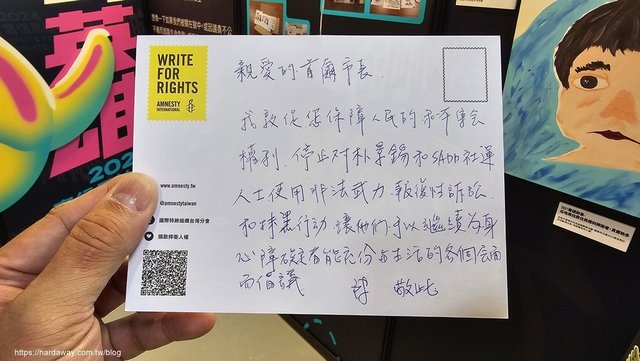 2024
英雄
202
WRITE
FOR
RIGHTS
AMNESTY
INTERNATIONAL
親愛的首爾市長,
我敦促您保障人民的和平集會
權利,停止對朴景錫和SADD社運
人士使用非法武力、報復性訴訟
和抹黑行動,讓他們可以繼續為身
心障礙者能充份参与生活的各個層面
而倡議
敬此
www.amnesty.tw
@amnestytaiwan
國際特赦組織台灣分會
捐款捍衛人權
https://hardaway.com.tw/blog